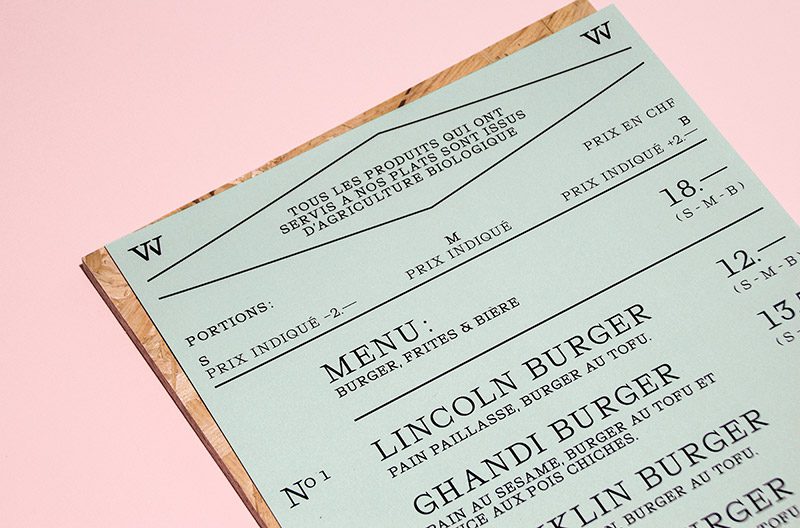 W
W
TOUS LES PRODUITS QUI ONT
SERVIS A NOS PLATS SONT ISSUS
D'AGRICULTURE BIOLOGIQUE
PRIX EN CHF
PORTIONS:
S
PRIX INDIQUÉ -2.—
M
PRIX INDIQUÉ
B
PRIX INDIQUÉ +2.—
MENU:
BURGER, FRITES & BIÈRE
18.—
(S-M-B)
Nº 1
LINCOLN BURGER
PAIN PAILLASSE, BURGER AU TOFU.
12.—
(S-M-B)
GHANDI BURGER
PAIN AU SESAME, BURGER AU TOFU ET
AUX POIS CHICHES.
13.
(S-
BURGER
BURGER AU TOFU.
BURGER